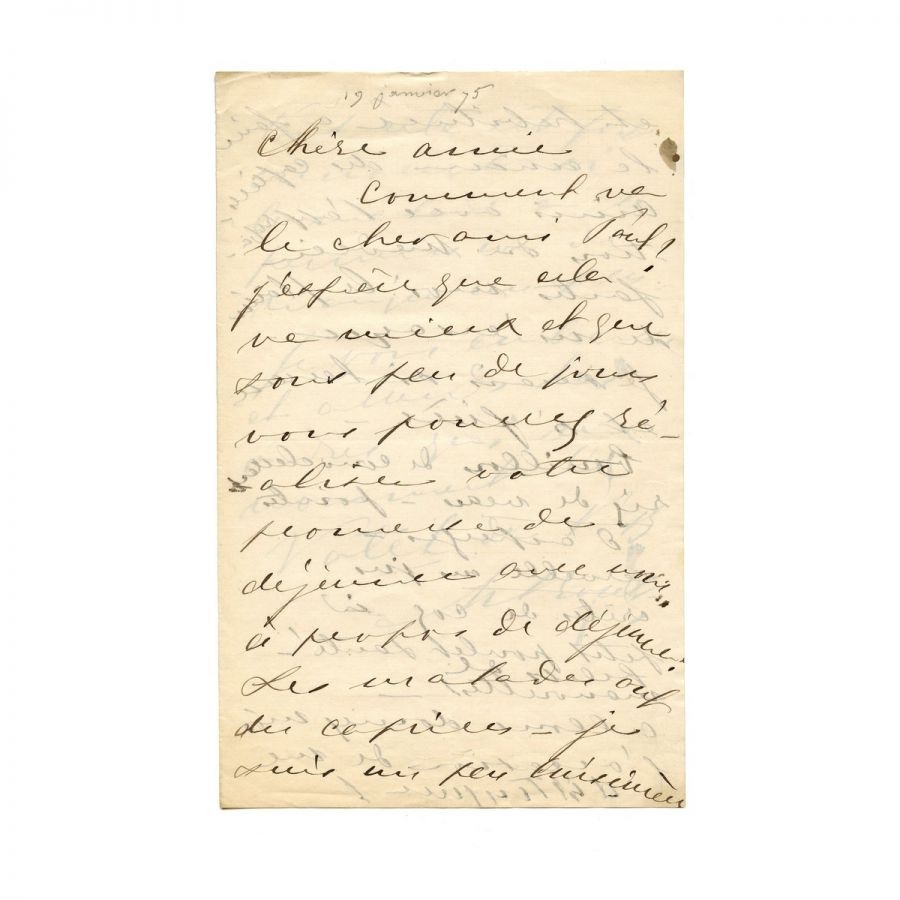 19 janvier 75
Chère amie
Comment va
le cher ami Paul?
j'espère que cela
va mieux et que
sous peu de jours
vous pourrez ré-
aliser votre
promesse de
déjeuner avec nous..
à propos de déjeuner
Les malades ont
des caprices - je
suis un peu cuisinière